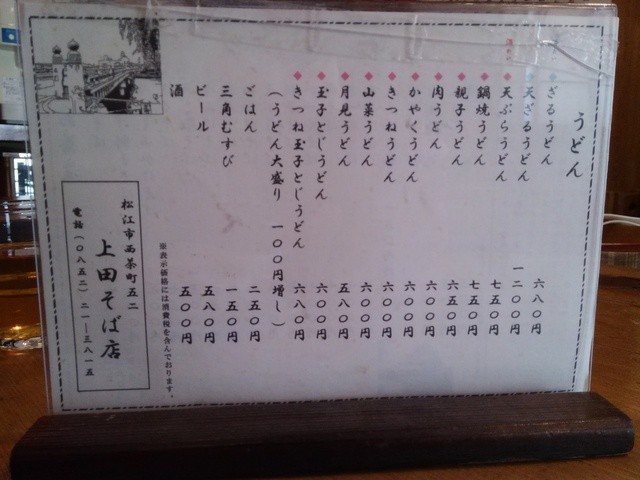 うどん
ざるうどん 六八〇円
天ざるうどん 一二〇〇円
天ぷらうどん 七五〇円
鍋焼うどん 七五〇円
親子うどん 六五〇円
肉うどん 六〇〇円
かやくうどん 六〇〇円
きつねうどん 六〇〇円
山菜うどん 六〇〇円
月見うどん 五八〇円
玉子とじうどん 六〇〇円
きつね玉子とじうどん 六八〇円
(うどん大盛り 一〇〇円増し)
ごはん 二五〇円
三角むすび 一五〇円
ビール 五八〇円
酒 五〇〇円
※表示価格には消費税を含んでおります。
松江市西茶町五二
上田そば店
電話(〇八五二)二一―三八一五